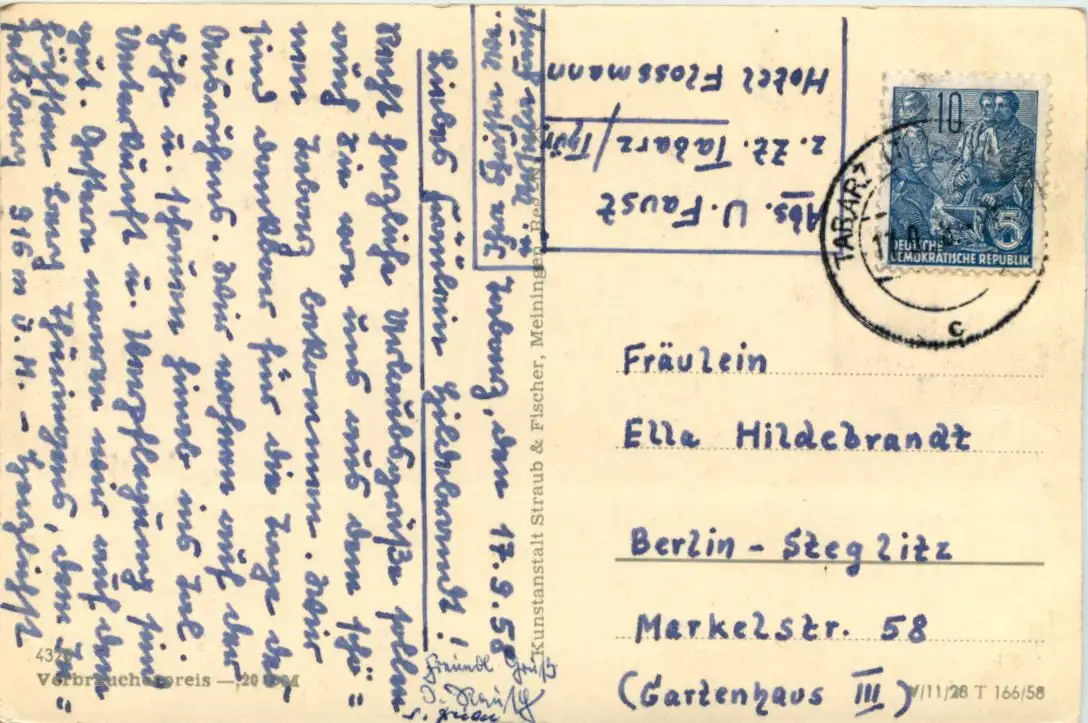 Tabarz, den 17.9.58
Liebes Fräulein Hildebrandt!
Recht herzliche Urlaubsgrüße sollen
wing Sie von uns aus dem schö=
nen Tabarz bekommen. Wir
sind dankbar für die Tage des
Ausruhens. Wir wohnen auf der
Höhe u. schauen hinab ins Tal.
Unterkunft u. Verpflegung sind
gut. Gestern waren wir auf dem
höchsten Berg Thüringens, dem In=
selsberg 916 m ü. M. - Herzlichst
Freundl. Grüße
Abs. U. Faust
z. Zt. Tabarz / Thür.
Hotel Flossmann
Fräulein
Ella Hildebrandt
Berlin - Steglitz
Markelstr. 58
(Gartenhaus III)
10
5
DEUTSCHE
DEMOKRATISCHE REPUBLIK
TABARZ
c
Kunstanstalt Straub & Fischer, Meiningen
Verbraucherpreis — 20
V/11/28 T 166/58